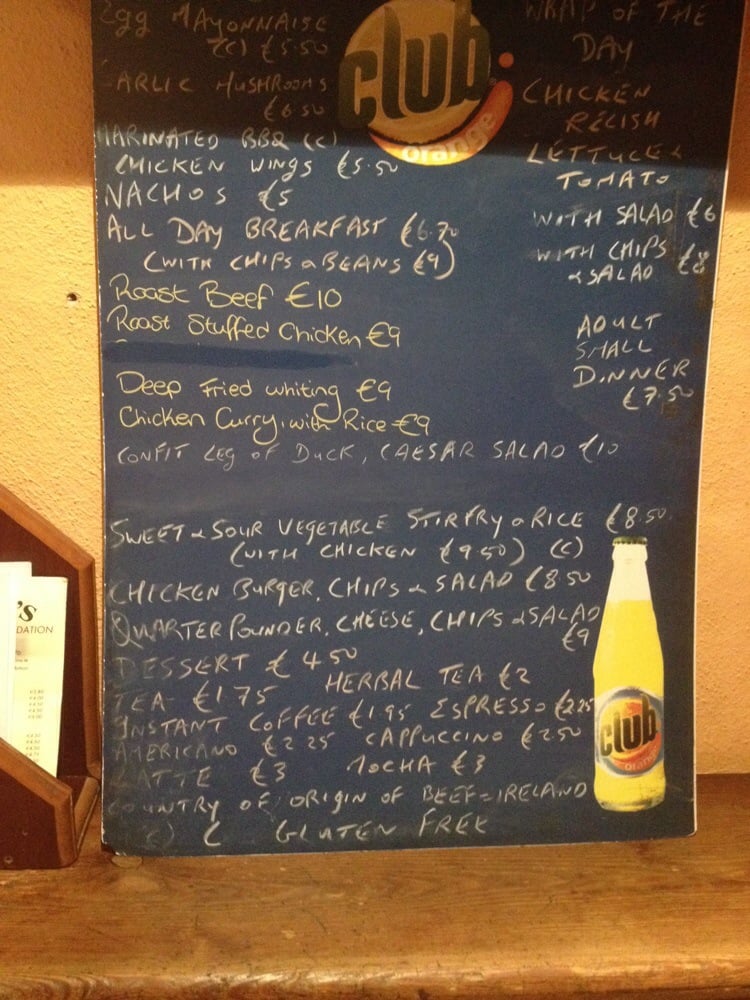 Egg MAYONNAISE
(C) €5.50
GARLIC MUSHROOMS
€6.50
MARINATED BBQ (C)
CHICKEN WINGS €5.50
NACHOS €5
ALL DAY BREAKFAST €6.70
(WITH CHIPS & BEANS €9)
Roast Beef €10
Roast Stuffed Chicken €9
Deep Fried whiting €9
Chicken Curry, with Rice €9
CONFIT LEG OF DUCK, CAESAR SALAD €10
SWEET & SOUR VEGETABLE STIRFRY & RICE €8.50
(WITH CHICKEN €9.50) (C)
CHICKEN BURGER, CHIPS & SALAD €8.50
QUARTER POUNDER, CHEESE, CHIPS & SALAD
€9
DESSERT €4.50
HERBAL TEA €2
TEA €1.75
INSTANT COFFEE €1.95 ESPRESSO €2.25
AMERICANO €2.25 CAPPUCCINO €2.50
LATTE €3 MOCHA €3
COUNTRY OF ORIGIN OF BEEF = IRELAND
(C) C GLUTEN FREE
WRAP OF THE
DAY
CHICKEN
RELISH
LETTUCE &
TOMATO
WITH SALAD €6
WITH CHIPS
& SALAD €8
ADULT
SMALL
DINNER
€7.50
club
orange
club
orange
's
DATION